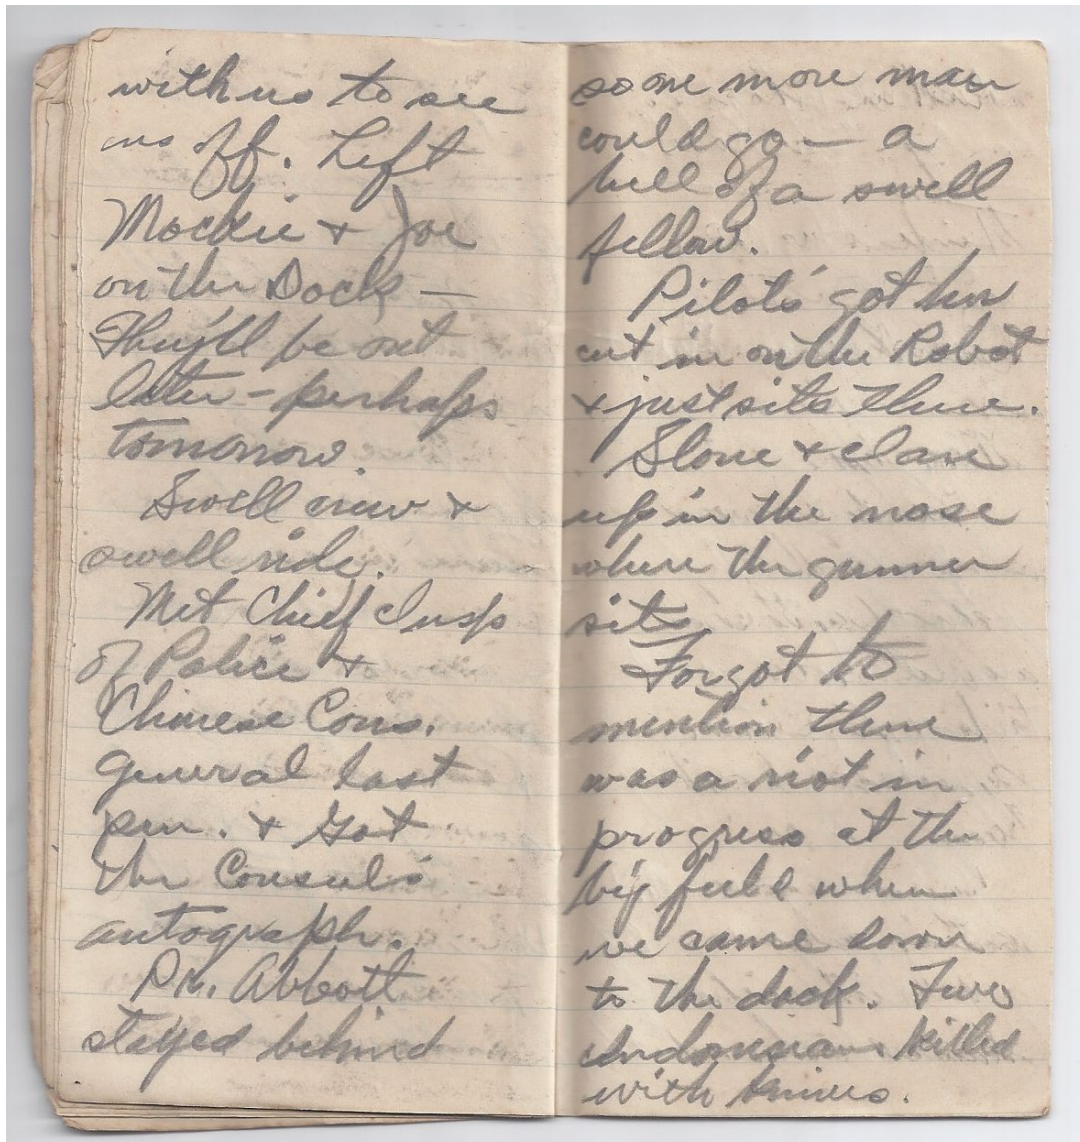 with us to see
us off. Left
Mackie & Joe
on the Dock —
They'll be out
later - perhaps
tomorrow.
Swell view &
swell ride.
Met Chief Insp
of Police &
Chinese Cons.
General last
pm. & Got
the Consul's
autograph.
Dr. Abbott
stayed behind
so one more man
could go — a
hell of a swell
fellow.
Pilots got her
cut in on the Robot
& just sits there.
Slone & clare
up in the nose
where the gunner
sits
Forgot to
mention there
was a riot in
progress at the
big field when
we came down
to the dock. Two
Indonesians killed
with knives.